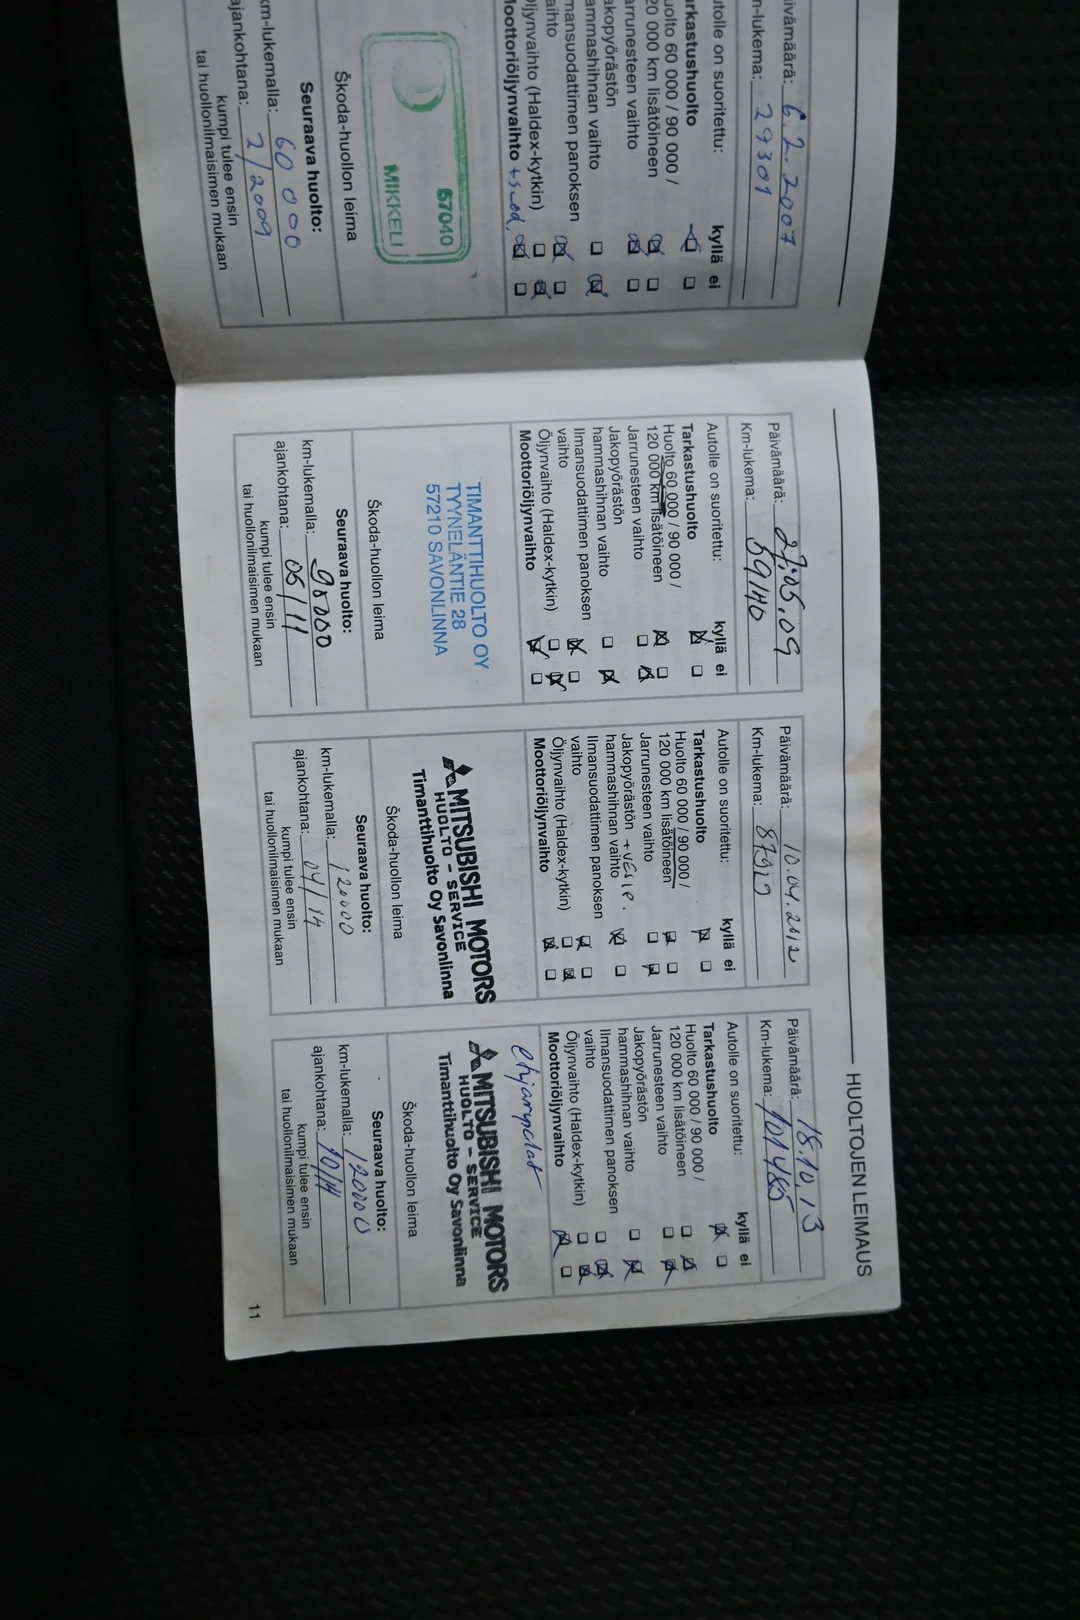 HUOLTOJEN LEIMAUS
6.2.2007
29301
utolle on suoritettu: kyllä ei
arkastushuolto
uolto 60 000 / 90 000 /
20 000 km lisätöineen
arrunesteen vaihto
akopyörästön
ammashihnan vaihto
mansuodattimen panoksen
aihto
ljynvaihto (Haldex-kytkin)
Moottoriöljynvaihto + suod.
67040
MIKKELI
Škoda-huollon leima
Seuraava huolto:
km-lukemalla: 60 000
ajankohtana: 2/2009
kumpi tulee ensin
tai huollonilmaisimen mukaan
Päivämäärä: 27.05.09
Km-lukema: 59140
Autolle on suoritettu: kyllä ei
Tarkastushuolto
Huolto 60 000 / 90 000 /
120 000 km lisätöineen
Jarrunesteen vaihto
Jakopyörästön
hammashihnan vaihto
Ilmansuodattimen panoksen
vaihto
Öljynvaihto (Haldex-kytkin)
Moottoriöljynvaihto
TIMANTTIHUOLTO OY
TYYNELÄNTIE 28
57210 SAVONLINNA
Škoda-huollon leima
Seuraava huolto:
km-lukemalla: 90000
ajankohtana: 05/11
kumpi tulee ensin
tai huollonilmaisimen mukaan
Päivämäärä: 10.04.2012
Km-lukema:
Autolle on suoritettu: kyllä ei
Tarkastushuolto
Huolto 60 000 / 90 000 /
120 000 km lisätöineen
Jarrunesteen vaihto
Jakopyörästön + VESIP.
hammashihnan vaihto
Ilmansuodattimen panoksen
vaihto
Öljynvaihto (Haldex-kytkin)
Moottoriöljynvaihto
MITSUBISHI MOTORS
HUOLTO - SERVICE
Timanttihuolto Oy Savonlinna
Škoda-huollon leima
Seuraava huolto:
km-lukemalla: 120000
ajankohtana: 04/14
kumpi tulee ensin
tai huollonilmaisimen mukaan
Päivämäärä: 18.10.13
Km-lukema: 101485
Autolle on suoritettu: kyllä ei
Tarkastushuolto
Huolto 60 000 / 90 000 /
120 000 km lisätöineen
Jarrunesteen vaihto
Jakopyörästön
hammashihnan vaihto
Ilmansuodattimen panoksen
vaihto
Öljynvaihto (Haldex-kytkin)
Moottoriöljynvaihto
MITSUBISHI MOTORS
HUOLTO - SERVICE
Timanttihuolto Oy Savonlinna
Škoda-huollon leima
Seuraava huolto:
km-lukemalla: 120000
ajankohtana: 10/14
kumpi tulee ensin
tai huollonilmaisimen mukaan
11